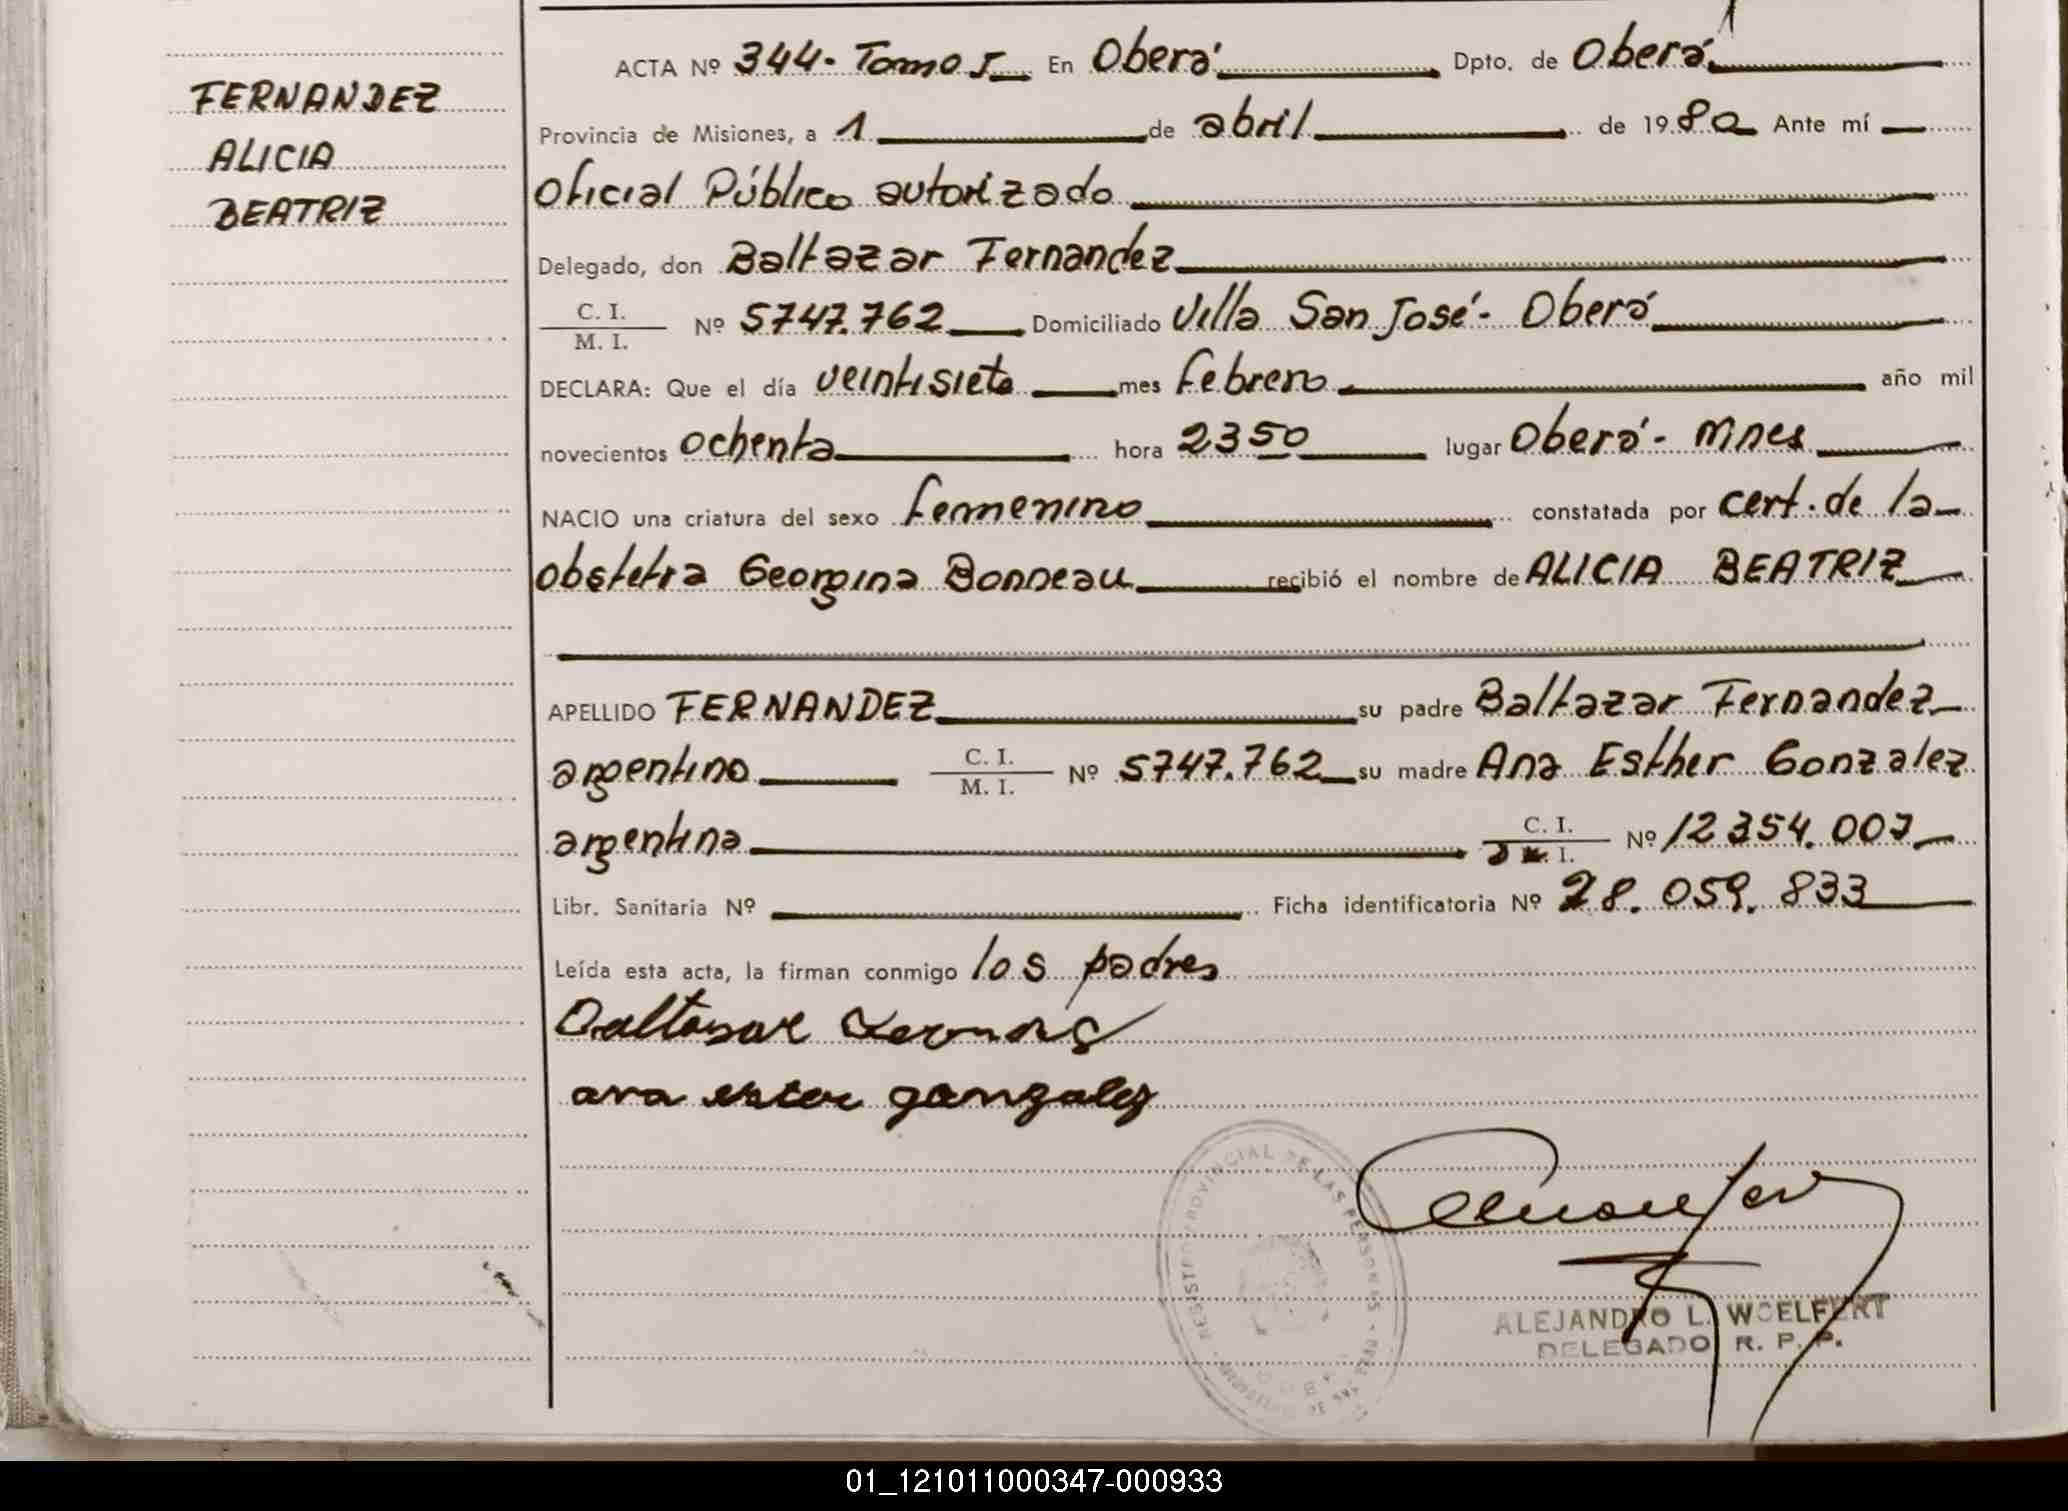 FERNANDEZ
ALICIA
BEATRIZ
ACTA Nº 344- Tomo I En Oberá Dpto. de Oberá
Provincia de Misiones, a 1 de abril de 1980 Ante mí
Oficial Público autorizado
Delegado, don Baltazar Fernandez
C. I.
M. I. Nº 5747.762 Domiciliado Villa San José- Oberá
DECLARA: Que el día veintisiete mes febrero año mil
novecientos ochenta hora 2350 lugar Oberá- Mnes
NACIO una criatura del sexo femenino constatada por cert. de la
obstetra Georgina Bonneau recibió el nombre de ALICIA BEATRIZ
APELLIDO FERNANDEZ su padre Baltazar Fernandez
argentino C. I. M. I. Nº 5747.762 su madre Ana Esther Gonzalez
argentina C. I. Nº 12354.007
Libr. Sanitaria Nº Ficha identificatoria Nº 28.059.833
Leída esta acta, la firman conmigo los padres
ana ester gonzalez
REGISTRO PROVINCIAL DE LAS PERSONAS
ALEJANDRO L. WOELFERT
DELEGADO R. P. P.
01_121011000347-000933